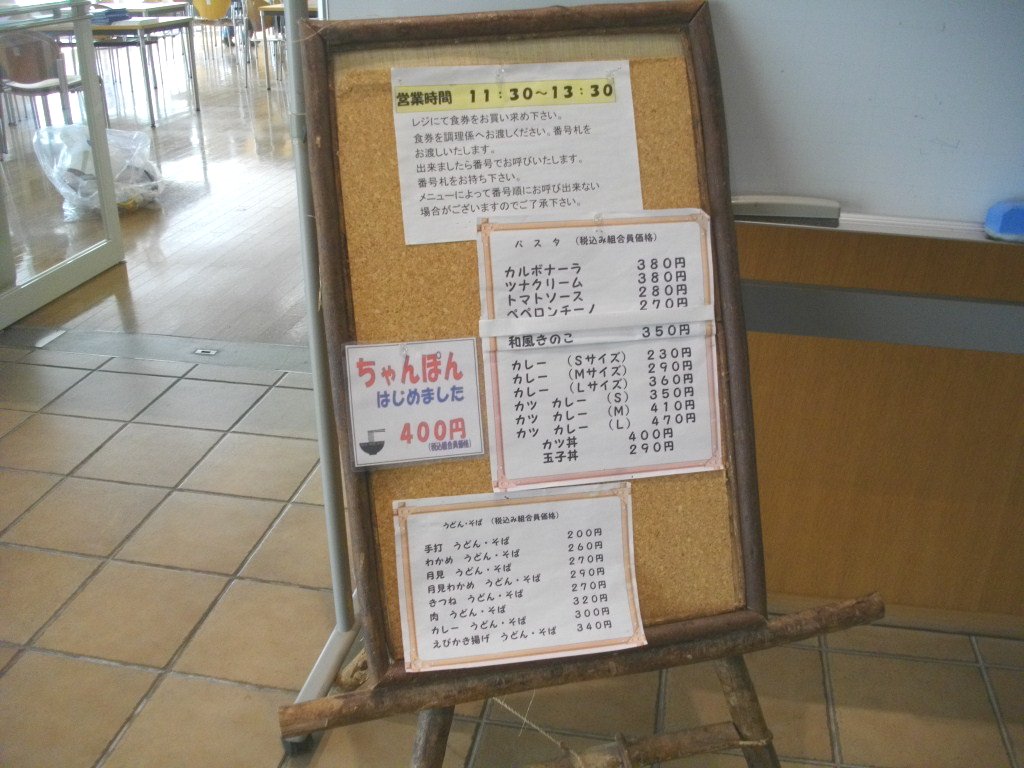 営業時間 11:30～13:30
レジにて食券をお買い求め下さい。
食券を調理係へお渡しください。番号札を
お渡しいたします。
出来ましたら番号でお呼びいたします。
番号札をお持ち下さい。
メニューによって番号順にお呼び出来ない
場合がございますのでご了承下さい。
パスタ （税込み組合員価格）
カルボナーラ 380円
ツナクリーム 380円
トマトソース 280円
ペペロンチーノ 270円
和風きのこ 350円
カレー （Sサイズ） 230円
カレー （Mサイズ） 290円
カレー （Lサイズ） 360円
カツ カレー （S） 350円
カツ カレー （M） 410円
カツ カレー （L） 470円
カツ丼 400円
玉子丼 290円
ちゃんぽん
はじめました
400円
（税込組合員価格）
うどん・そば （税込み組合員価格）
手打 うどん・そば 200円
わかめ うどん・そば 260円
月見 うどん・そば 270円
月見わかめ うどん・そば 290円
きつね うどん・そば 270円
肉 うどん・そば 320円
カレー うどん・そば 300円
えびかき揚げ うどん・そば 340円